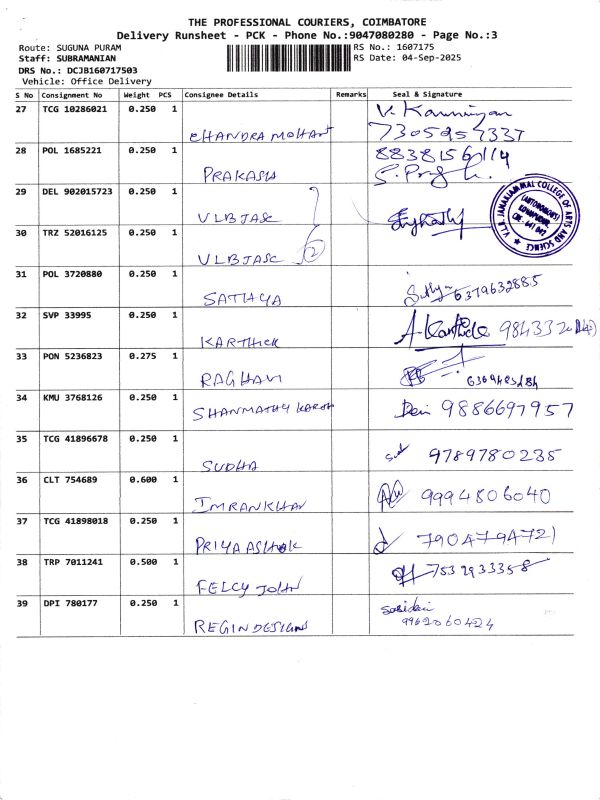 THE PROFESSIONAL COURIERS, COIMBATORE
Delivery Runsheet - PCK - Phone No.:9047080280 - Page No.:3
Route: SUGUNA PURAM
RS No.: 1607175
Staff: SUBRAMANIAN
RS Date: 04-Sep-2025
DRS No.: DCJB160717503
Vehicle: Office Delivery
S No Consignment No Weight PCS Consignee Details Remarks Seal & Signature
27 TCG 10286021 0.250 1
CHANDRA MOHAN
28 POL 1685221 0.250 1
8838156114
PRAKASH
29 DEL 902015723 0.250 1
VLBJASC
V.L.B. JANAKIAMMAL COLLEGE OF ARTS AND SCIENCE
(AUTONOMOUS)
KOVAIPUDUR,
CBE - 641 042
30 TRZ 52016125 0.250 1
VLBJASC 2
31 POL 3720880 0.250 1
SATHYA Sathya 6379632885
32 SVP 33995 0.250 1
KARTHICK
33 PON 5236823 0.275 1
RAGHAVI
34 KMU 3768126 0.250 1
SHANMATHY 9886697957
35 TCG 41896678 0.250 1
SUDHA 9789780235
36 CLT 754689 0.600 1
IMRANKHAN 9994806040
37 TCG 41898018 0.250 1
PRIYA ASHOK 7904794721
38 TRP 7011241 0.500 1
FELCY JOHN 7532933358
39 DPI 780177 0.250 1
REGIN DESIGNS
9962060424